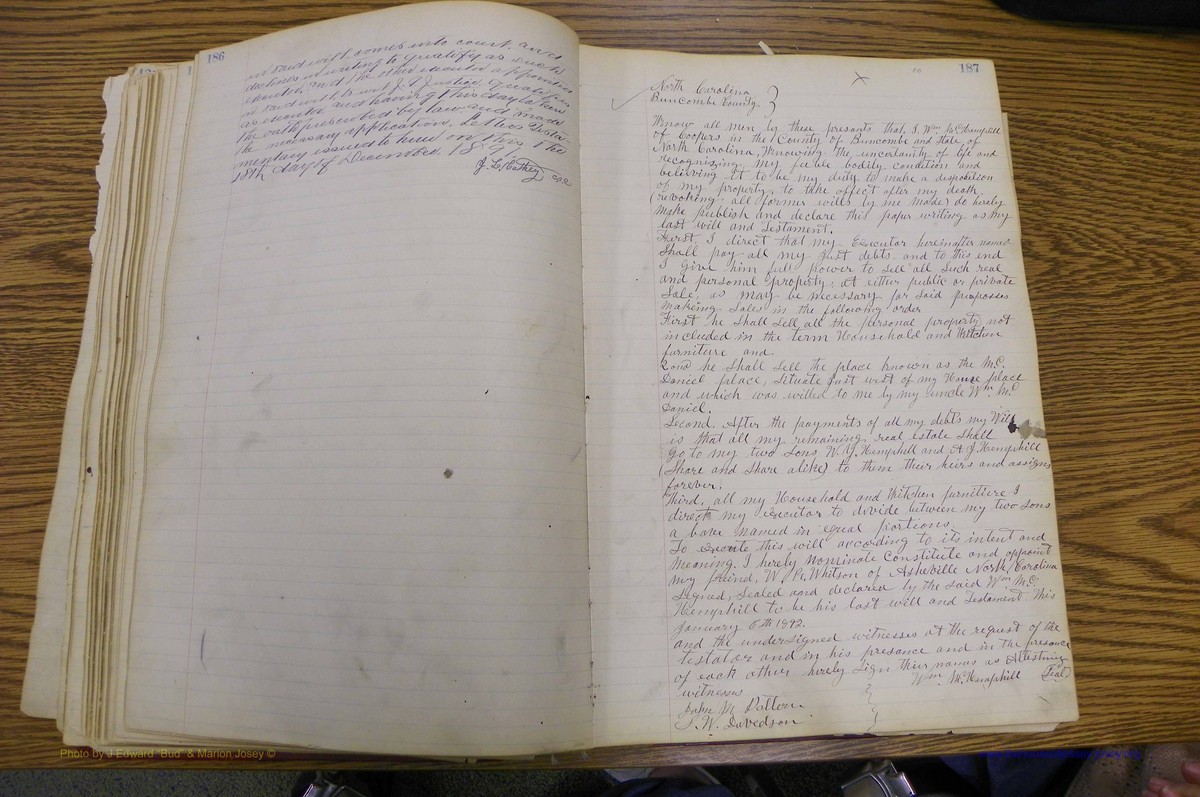 186
in said will comes into court and
declines in writing to qualify as such
executor and the other executor appointed
in said will to wit J. J. Justice qualifies
as executor and having this day taken
the oath prescribed by law and made
the necessary application, letters testa-
mentary issued to him on this the
18th day of December 189
J. L. Cathey CSC
187
North Carolina
Buncombe County }
Know all men by these presants that, I, Wm Mc Hemphill
of Coopers in the County of Buncombe and State of
North Carolina, Knowing the uncertainty of life and
recognizing my feble bodily condition and
believing it to be my duty to make a disposition
of my property to take affect after my death.
(revoking all former wills by me made) do herely
make publish and declare this paper writing as my
last will and Testament.
First, I direct that my Executor hereinafter named
Shall pay all my just debts and to this end
I give him full power to sell all such real
and personal property, at either public or private
Sale, as may be necessary for said purposses
making Sales in the following order
First he shall sell all the personal property not
included in the term Household and Kitchen
furniture and
2ond he shall sell the place known as the Mc.
Daniel place, situate just west of my House place
and which was willed to me by my uncle Wm Mc
Daniel.
Second. After the payments of all my debts my Will
is that all my remaining real estate shall
go to my two sons W. Y. Hemphill and A. J. Hemphill
(Share and share alike) to them their heirs and assigns
forever.
Third, all my Household and Kitchen furniture I
direct my executor to divide between my two sons
a bove named in equal portions.
To execute this will according to its intent and
meaning. I herely nominate Constitute and appoint
my freind, W. R. Whitson of Asheville North Carolina
Signed, sealed and declared by the said Wm Mc.
Hemphill to be his last will and Testament This
January 6th 1892.
and the undersigned witnesses at the request of the
testator and in his presance and in the presance
of each other herely sign their names as Attesting
witnesses Wm. Mc Hemphill (Seal)
John M. Patton
S. W. Davedson
Photo by J Edward "Bud" & Marion Josey ©